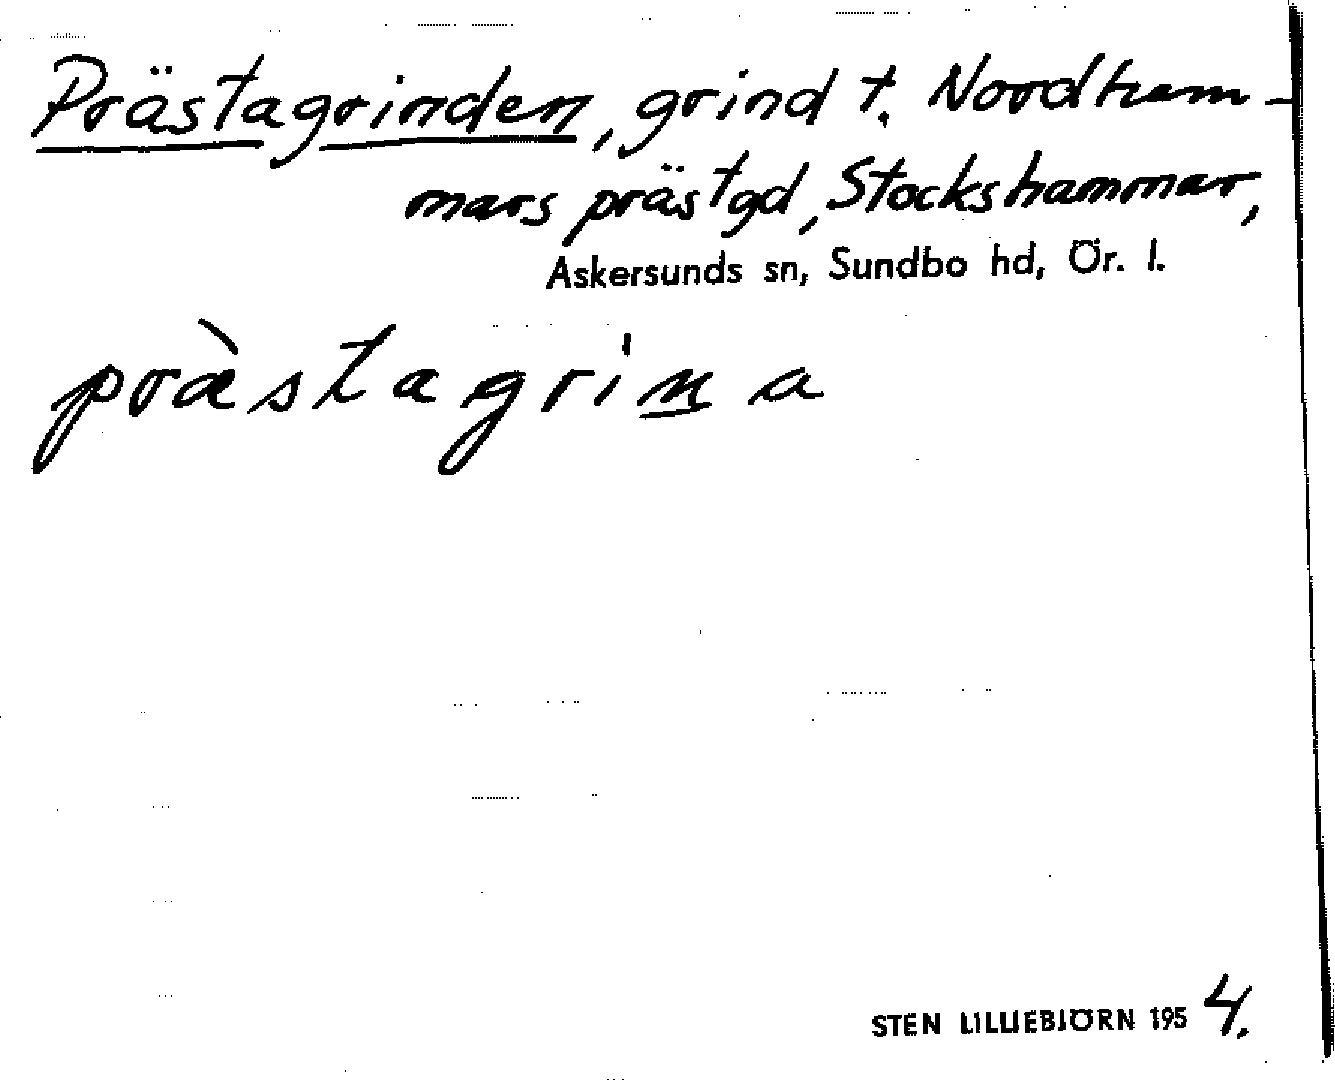 Prästagrinden, grind t. Nordham-
mars prästgd, Stockshammar,
Askersunds sn, Sundbo hd, Ör. l.
præ̀stagrina
STEN LILLIEBJÖRN 1954.